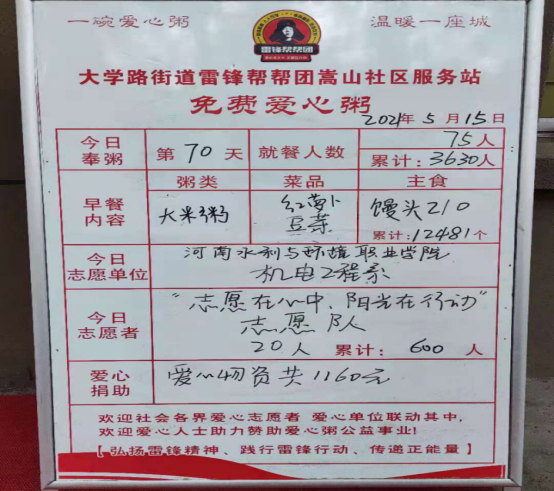 一碗爱心粥
温暖一座城
雷锋帮帮团
大学路街道雷锋帮帮团嵩山社区服务站
免费爱心粥
2021年5月15日
今日奉粥 第70天 就餐人数 75人
累计:3630人
早餐内容 粥类 菜品 主食
大米粥 红萝卜 馒头210
豆芽 累计:12481个
今日志愿单位 河南水利与环境职业学院
机电工程系
今日志愿者 “志愿在心中、阳光在行动”
志愿队
20人 累计:600人
爱心捐助 爱心物资共1160元
欢迎社会各界爱心志愿者 爱心单位联动其中,
欢迎爱心人士助力赞助爱心粥公益事业!
【弘扬雷锋精神、践行雷锋行动、传递正能量】